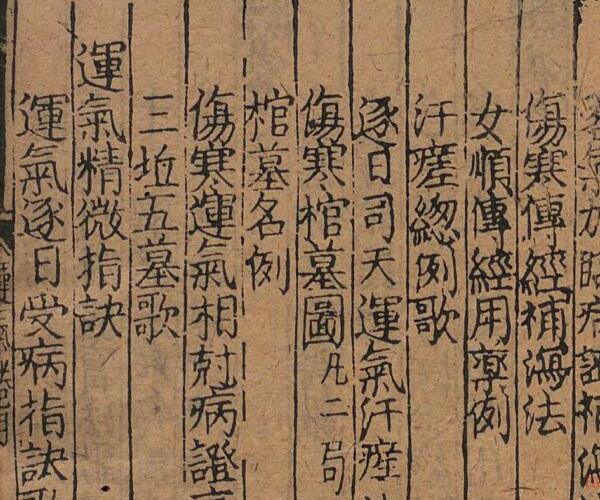 氣加臨病證補
傷寒傳經補瀉法
女順傳經用藥例
汗瘥緫例歌
逐日司天運氣汗瘥
傷寒棺墓圖凡二局
棺墓名例
傷寒運氣相尅病證
三坵五墓歌
運氣精微指訣
運氣逐日受病指訣